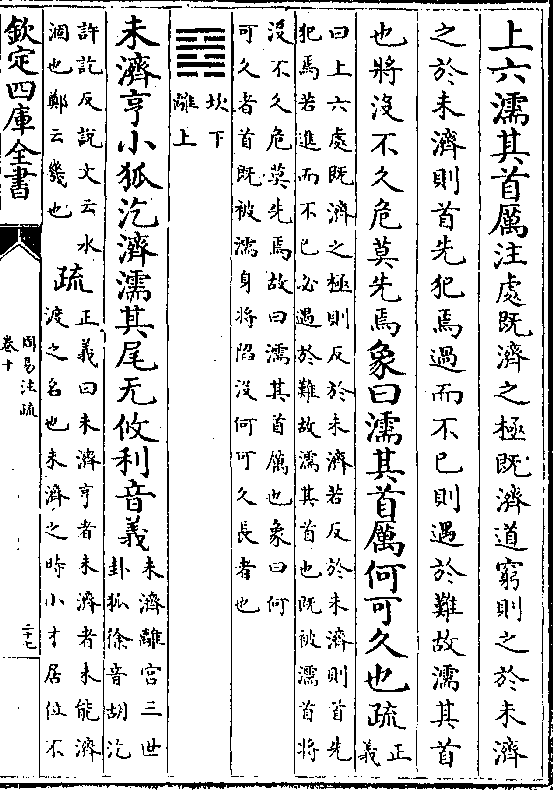 上六濡其首厲注處既濟之極既濟道窮則之於未濟
之於未濟則首先犯焉過而不已則遇於難故濡其首
也將沒不久危莫先焉象曰濡其首厲何可久也疏正
義
曰上六處既濟之極則反於未濟若反於未濟則首先
犯焉若進而不已必遇於難故濡其首也既被濡首將
沒不久危莫先焉故曰濡其首厲也象曰何
可久者首既被濡身將陷沒何可久長者也
坎下
離上
未濟亨小狐汔濟濡其尾无攸利音義
未濟離宮三世
卦狐徐音胡汔
許訖反說文云水
涸也鄭云幾也
疏
正義曰未濟亨者未濟者未能濟
渡之名也未濟之時小才居位不
欽定四庫全書
周易注疏
卷十
二十七